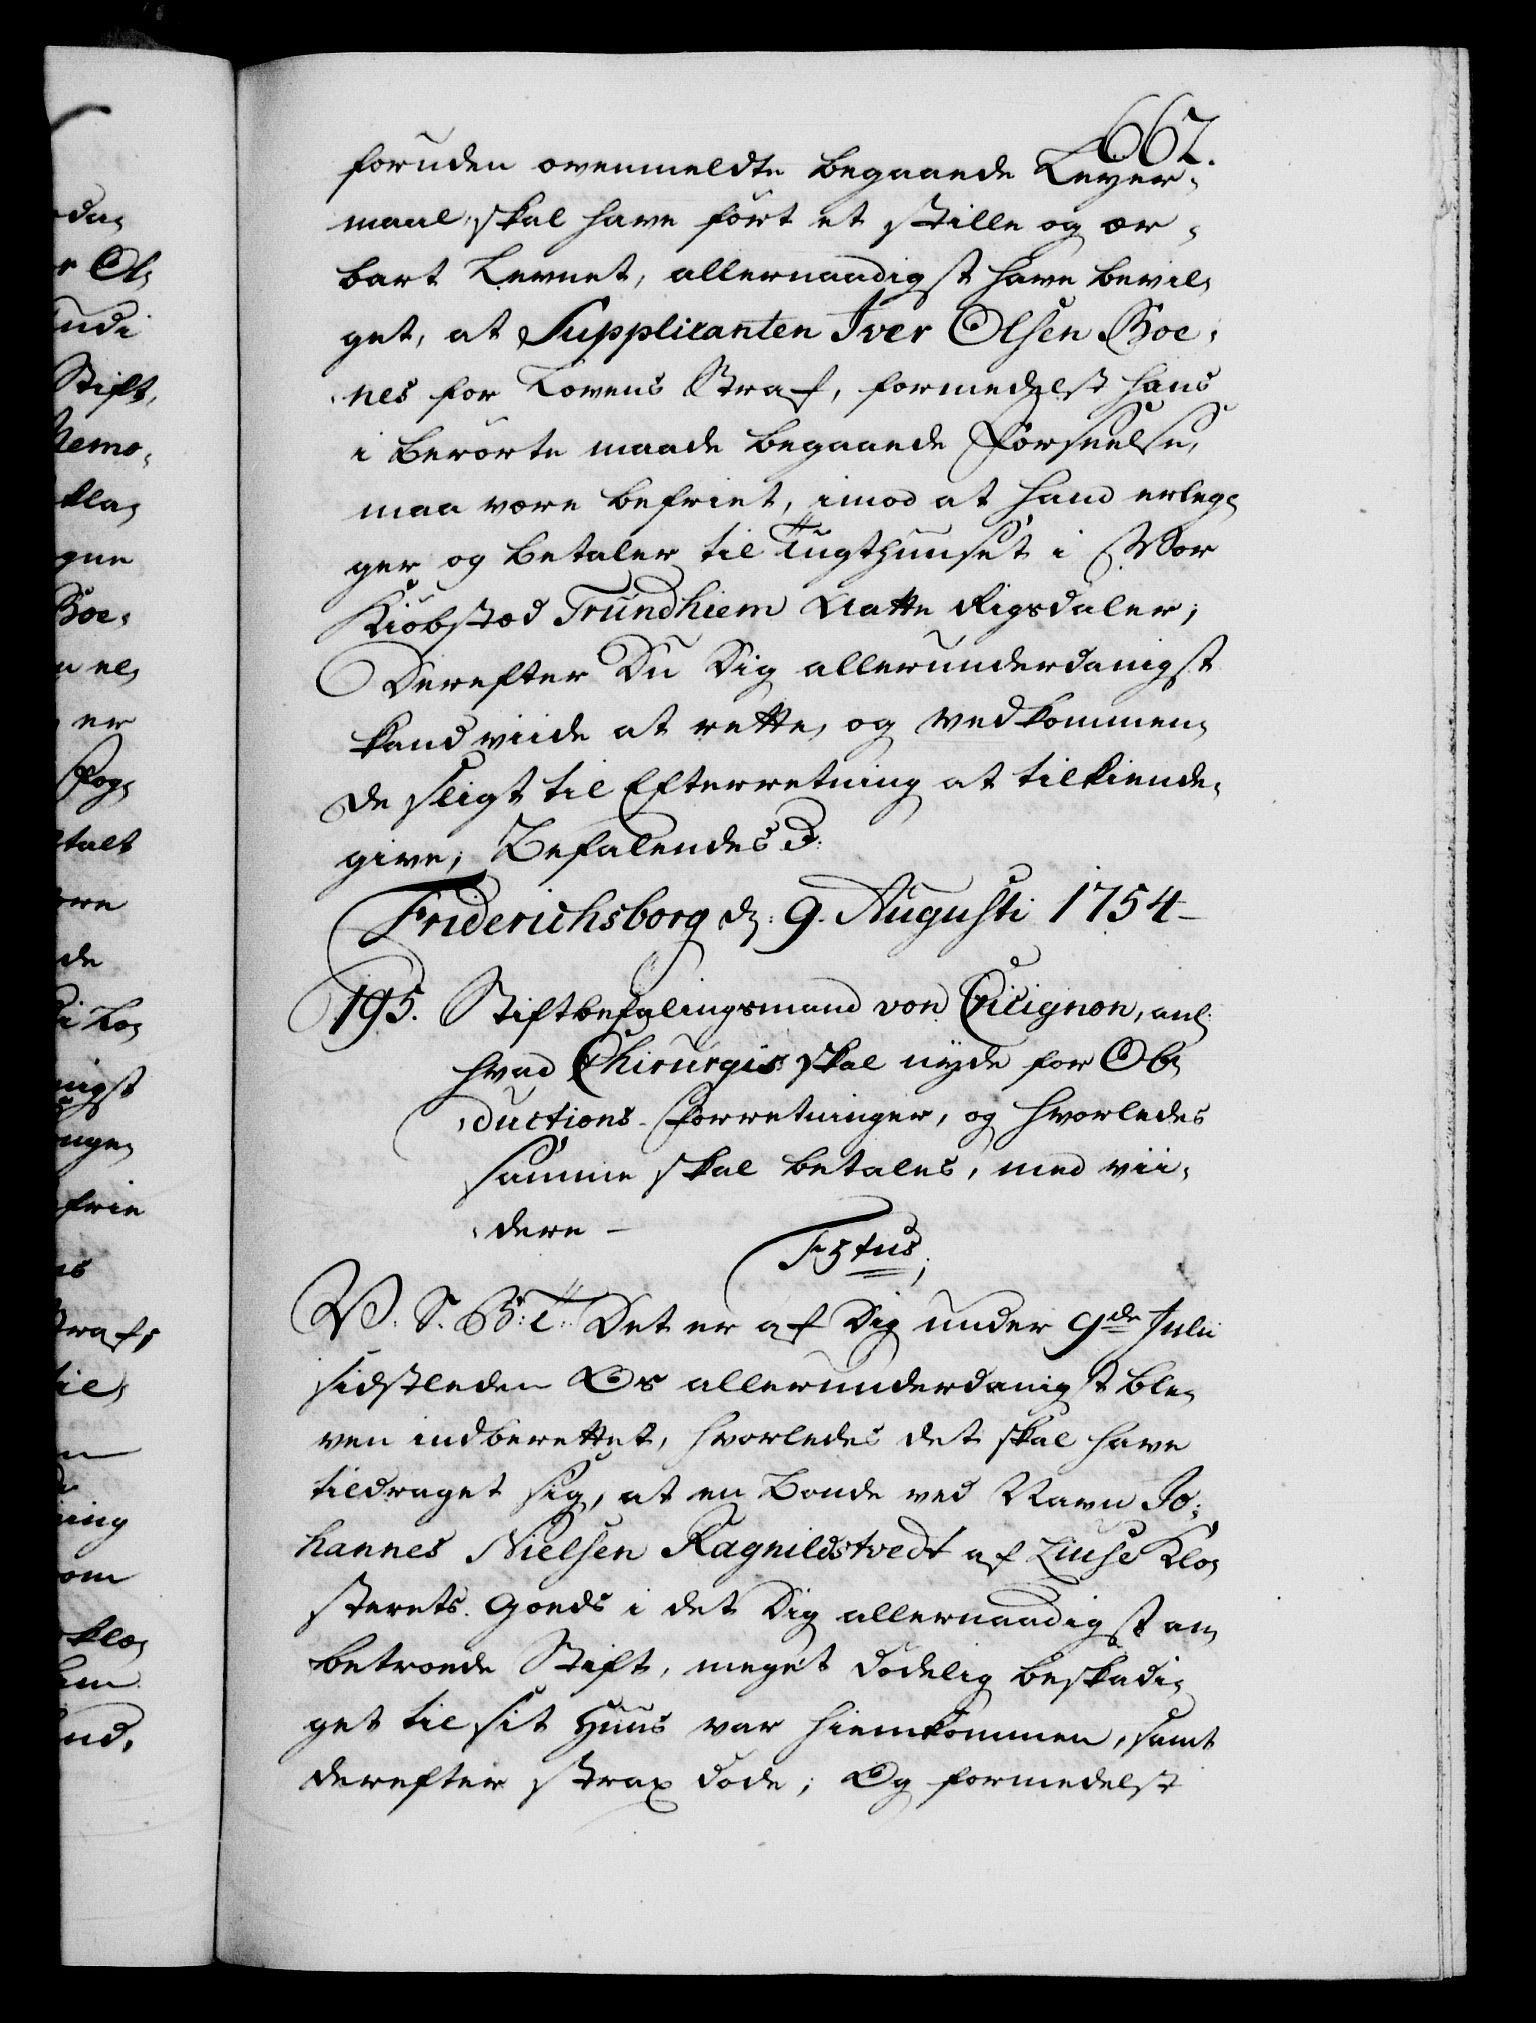 662.
foruden ovenmeldte begaaede Leyer-
maal, skal have ført et stille og ær-
bart Levnet, allernaadigst have bevil-
get, at Supplicanten Iver Olsen Boe-
nes for Lovens Straf, formedelst hans
i berørte maade begaaede Forseelse,
maa være befriet, imod at hand erleg-
ger og betaler til Tugthuuset i Vor
Kiøbstæd Trundhiem Aatte Rigsdaler;
Derefter Du Dig allerunderdanigst
kand viide at rette, og vedkommen-
de sligt til Efterretning at tilkiende-
give; Befalendes D:
Friderichsborg d: 9. Augusti 1754
195. Stiftbefalingsmand von Cicignon, anl:
hvad Chirurgis skal nyde for Ob-
ductions-Forretninger, og hvorledes
samme skal betales, med vii-
dere -
F5tus;
V. S. B: T: Det er af Dig under 9de Julii
sidstleden Os allerunderdanigst ble-
ven indberettet, hvorledes det skal have
tildraget sig, at en Bonde ved Navn Jo-
hannes Nielsen Ragnildstvedt af Liuse Klo-
sterets Goeds i det Dig allernaadigst an-
betroede Stift, meget dødelig beskadi-
get til sit Huus var hiemkommen, samt
derefter strax døde; Og formedelst